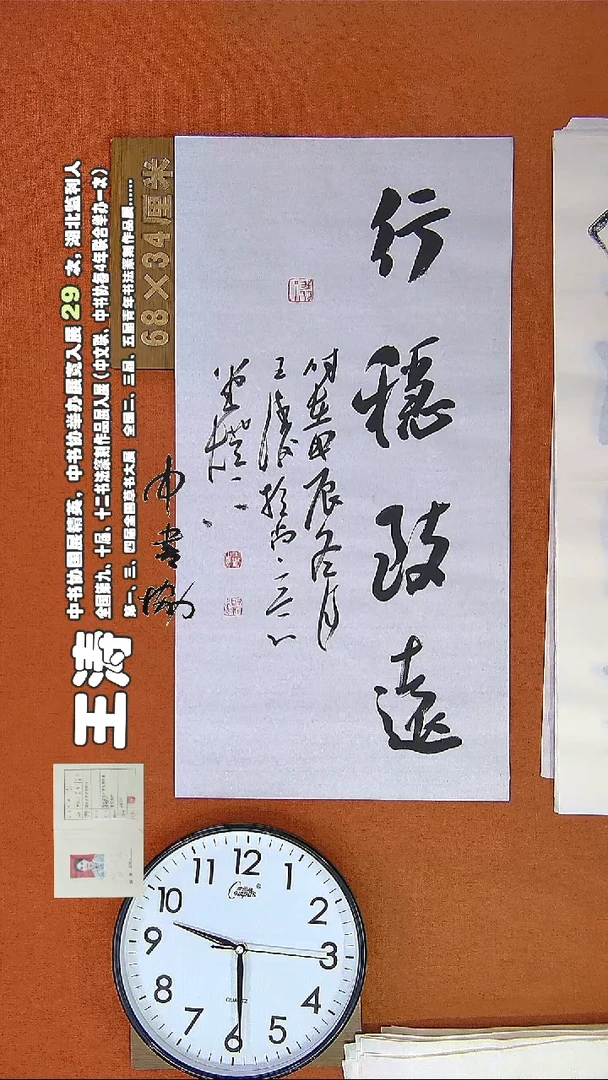 行穩致遠
时在甲辰冬月
王涛
68×34厘米
中书协国展精英,中书协举办展览入展 29 次,湖北监利人
全国第九、十届、十二书法篆刻作品展入展(中文联、中书协每4年联合举办一次)
第一、三、四届全国草书大展 全国二、三届、五届青年书法篆刻作品展......
王涛
中書協
12
1
2
3
4
5
6
7
8
9
10
11
QUARTZ